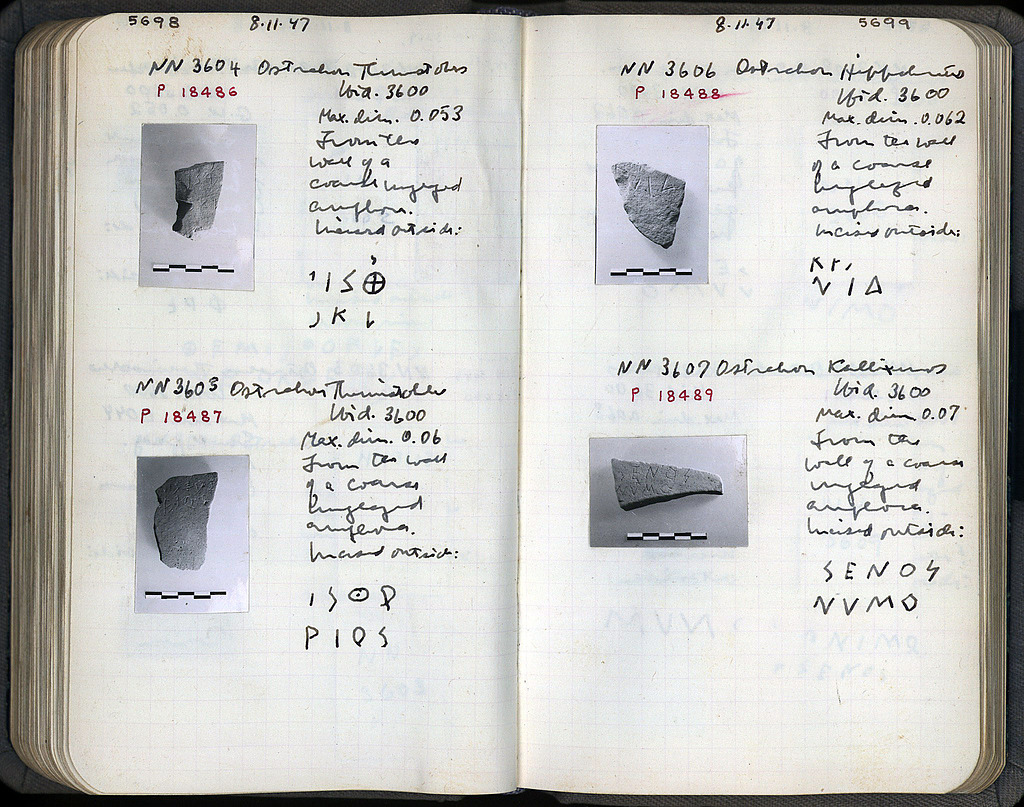 5698 8.11.47
NN 3604 Ostrakon Themistokles
P 18486 Ibid. 3600
Max. dim. 0.053
From the
wall of a
coarse unglazed
amphora.
Incised outside:
ΙSⴲ
Κ
NN 3605 Ostrakon Themistokles
P 18487 Ibid. 3600
Max. dim. 0.06
From the wall
of a coarse
unglazed
amphora.
Incised outside:
ΙSΘ
ΡΙΟS
8.11.47 5699
NN 3606 Ostrakon Hippokrates
P 18488 Ibid. 3600
Max. dim. 0.062
From the wall
of a coarse
unglazed
amphora.
Incised outside:
ΝΙΔ
NN 3607 Ostrakon Kallixenos
P 18489 Ibid. 3600
Max. dim. 0.07
From the
wall of a coarse
unglazed
amphora.
Incised outside:
SENOS
NVMO